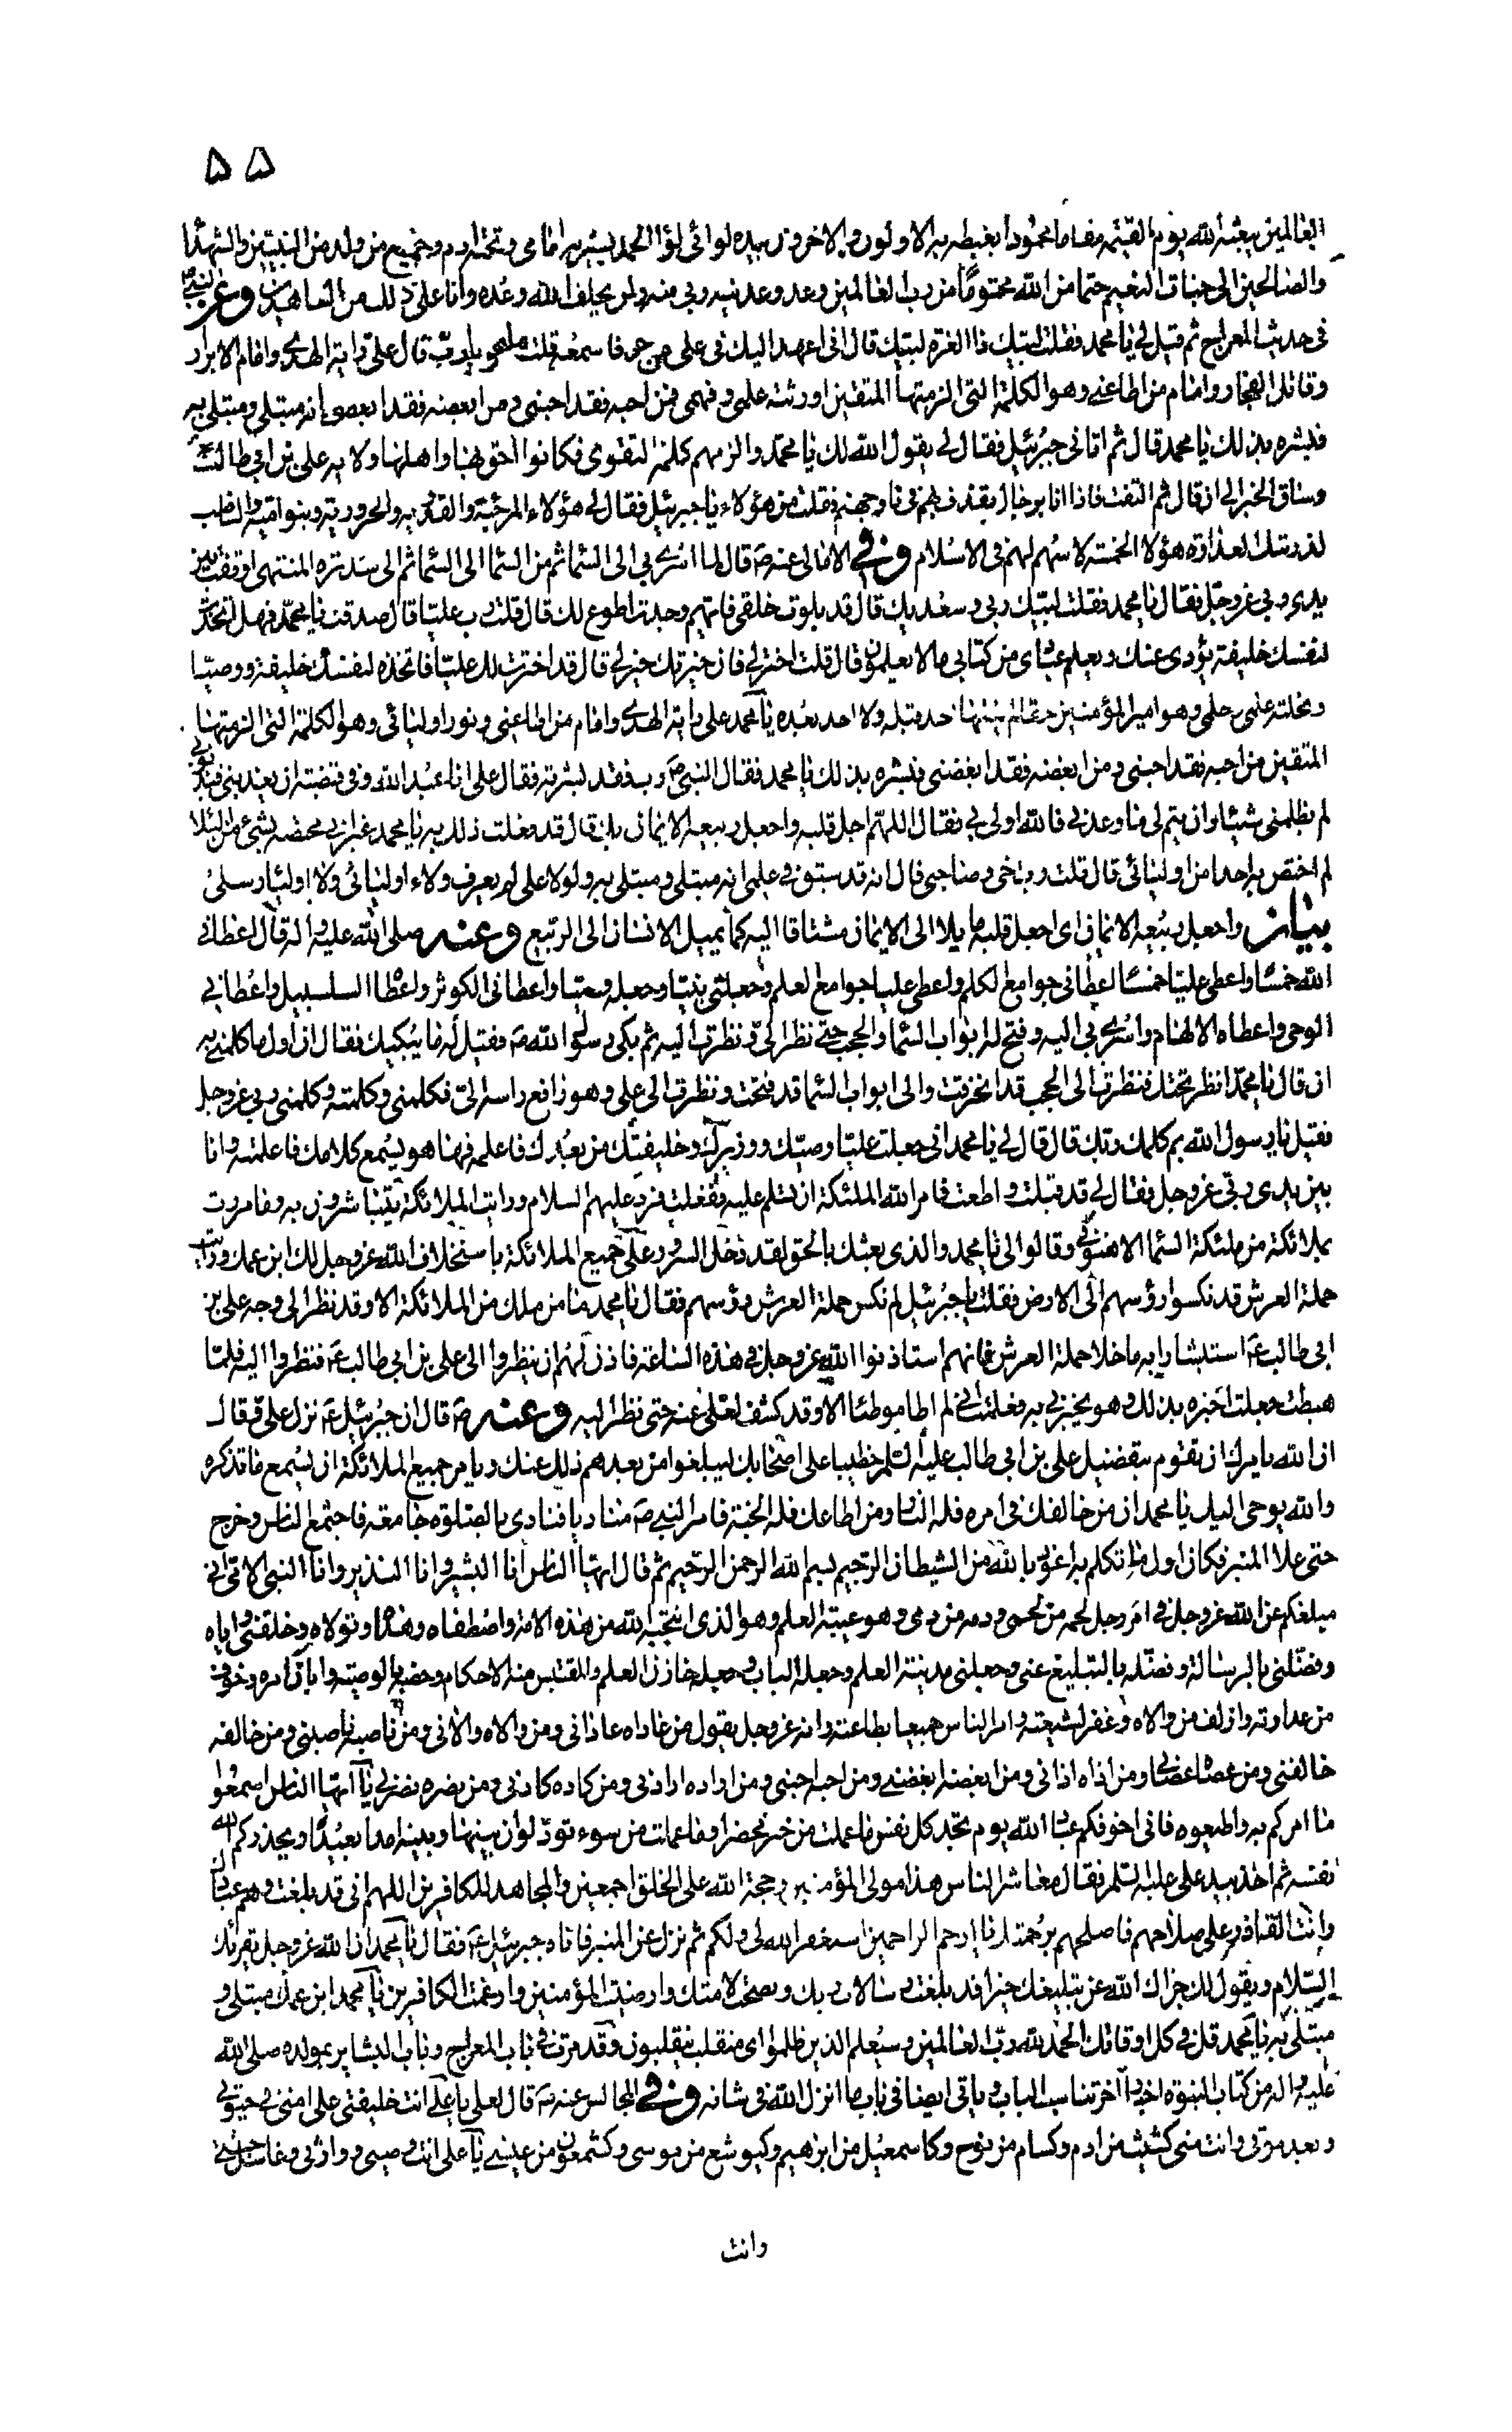 ۵۵
العالمين يبعثه الله يوم القيمة مقاما محمودا يغبطه به الاولون والاخرون بيده لوائي لواء الحمد يسير به امامي وتحته ادم وجميع من ولد من النبيين والشهداء
والصالحين الى جنات النعيم حتما من الله محتوما من رب العالمين وعد وعدنيه ربي فيه ولن يخلف الله وعده وانا على ذلك من الشاهدين وعن النبي ص
في حديث المعراج ثم قيل لي يا محمد فقلت لبيك ذا العزة لبيك قال اني اعهد اليك في علي عهدا فاسمعه قلت ما هو يا رب قال علي راية الهدى وامام الابرار
وقاتل الفجار وامام من اطاعني وهو الكلمة التي الزمتها المتقين اورثته علمي وفهمي فمن احبه فقد احبني ومن ابغضه فقد ابغضني انه مبتلى ومبتلى به
فبشره بذلك يا محمد قال ثم اتاني جبرئيل فقال لي يقول الله لك يا محمد والزمهم كلمة التقوى فكانوا احق بها واهلها ولاية علي بن ابي طالب
وساق الخبر الى ان قال ثم التفت فاذا انا برجال يقذف بهم في نار جهنم فقلت من هؤلاء يا جبرئيل فقال لي هؤلاء المرجئة والقدرية والحرورية وبنو امية والناصب
لذريتك العداوة هؤلاء الخمسة لا سهم لهم في الاسلام وفي الامالي عنه ص قال لما اسري بي الى السماء ثم من السماء الى السماء ثم الى سدرة المنتهى اوقفت بين
يدي ربي عز وجل فقال يا محمد فقلت لبيك ربي وسعديك قال قد بلوت خلقي فايهم وجدت اطوع لك قال قلت رب عليا قال صدقت يا محمد فهل اتخذت
لنفسك خليفة يؤدي عنك ويعلم عبادي من كتابي ما لا يعلمون قال قلت اختر لي فان خيرتك خير لي قال قد اخترت لك عليا فاتخذه لنفسك خليفة ووصيا
ونحلته علمي وحلمي وهو امير المؤمنين حقا لم ينلها احد قبله ولا احد بعده يا محمد علي راية الهدى وامام من اطاعني ونور اوليائي وهو الكلمة التي الزمتها
المتقين من احبه فقد احبني ومن ابغضه فقد ابغضني فبشره بذلك يا محمد فقال النبي ص رب فقد بشرته فقال علي انا عبد الله وفي قبضته ان يعذبني فبذنوبي
لم يظلمني شيئا وان يتم لي ما وعدني فالله اولى بي فقال اللهم اجل قلبه واجعل ربيعه الايمان بك قال قد فعلت ذلك به يا محمد غير اني مختصه بشيء من البلاء
لم اختص به احدا من اوليائي قال قلت رب اخي وصاحبي قال انه قد سبق في علمي انه مبتلى ومبتلى به ولولا علي لم يعرف ولاء اوليائي ولا اولياء رسلي
بيان واجعل ربيعه الايمان اي اجعل قلبه مايلا الى الايمان مشتاقا اليه كما يميل الانسان الى الربيع وعنه صلى الله عليه واله قال اعطاني
الله خمسا واعطى عليا خمسا اعطاني جوامع الكلم واعطى عليا جوامع العلم وجعلني نبيا وجعله وصيا واعطاني الكوثر واعطاه السلسبيل واعطاني
الوحي واعطاه الالهام واسري بي اليه وفتح له ابواب السماء والحجب حتى نظر الي ونظرت اليه ثم بكى رسول الله ص فقيل له ما يبكيك فقال ان اول ما كلمني به
ان قال يا محمد انظر تحتك فنظرت الى الحجب قد انخرقت والى ابواب السماء قد فتحت ونظرت الى علي وهو رافع راسه الي فكلمني وكلمته وكلمني ربي عز وجل
فقيل يا رسول الله بم كلمك ربك قال قال لي يا محمد اني جعلت عليا وصيك ووزيرك وخليفتك من بعدك فاعلمه فها هو يسمع كلامك فاعلمته وانا
بين يدي ربي عز وجل فقال لي قد قبلت واطعت فامر الله الملئكة ان تسلم عليه ففعلت فرد عليهم السلام ورايت الملائكة يتباشرون به وما مررت
بملائكة من ملئكة السماء الا هنئوني وقالوا لي يا محمد والذي بعثك بالحق لقد دخل السرور على جميع الملائكة باستخلاف الله عز وجل لك ابن عمك ورايت
حملة العرش قد نكسوا رؤسهم الى الارض فقلت يا جبرئيل لم نكس حملة العرش رؤسهم فقال يا محمد ما من ملك من الملائكة الا وقد نظر الى وجه علي بن
ابي طالب ع استبشارا به ما خلا حملة العرش فانهم استاذنوا الله عز وجل في هذه الساعة فاذن لهم ان ينظروا الى علي بن ابي طالب ع فنظروا اليه فلما
هبطت جعلت اخبره بذلك وهو يخبرني به فعلمت اني لم اطا موطئا الا وقد كشف لعلي عنه حتى نظر اليه وعنه ص قال ان جبرئيل ع نزل علي وقال
ان الله يامرك ان تقوم بتفضيل علي بن ابي طالب عليه السلم خطيبا على اصحابك ليبلغوا من بعدهم ذلك عنك ويامر جميع الملائكة ان تسمع ما تذكره
والله يوحي اليك يا محمد ان من خالفك في امره فله النار ومن اطاعك فله الجنة فامر النبي ص مناديا فنادى بالصلوة جامعة فاجتمع الناس وخرج
حتى علا المنبر فكان اول ما تكلم به اعوذ بالله من الشيطان الرجيم بسم الله الرحمن الرحيم ثم قال ايها الناس انا البشير وانا النذير وانا النبي الامي اني
مبلغكم عن الله عز وجل في امر رجل لحمه من لحمي ودمه من دمي وهو عيبة العلم وهو الذي انتجبه الله من هذه الامة واصطفاه وهداه وتولاه وخلقني واياه
وفضلني بالرسالة وفضله بالتبليغ عني وجعلني مدينة العلم وجعله الباب وجعله خازن العلم والمقتبس منه الاحكام وخصه بالوصية وابان امره وخوف
من عداوته وازلف من والاه وغفر لشيعته وامر الناس جميعا بطاعته وانه عز وجل يقول من عاداه عاداني ومن والاه والاني ومن ناصبه ناصبني ومن خالفه
خالفني ومن عصاه عصاني ومن اذاه اذاني ومن ابغضه ابغضني ومن احبه احبني ومن اراده ارادني ومن كاده كادني ومن نصره نصرني يا ايها الناس اسمعوا
ما امركم به واطيعوه فاني اخوفكم عقاب الله يوم تجد كل نفس ما عملت من خير محضرا وما عملت من سوء تود لو ان بينها وبينه امدا بعيدا ويحذركم الله
نفسه ثم اخذ بيد علي عليه السلم فقال معاشر الناس هذا مولى المؤمنين وحجة الله على الخلق اجمعين والمجاهد للكافرين اللهم اني قد بلغت وهم عبادك
وانت القادر على صلاحهم فاصلحهم برحمتك يا ارحم الراحمين استغفر الله لي ولكم ثم نزل عن المنبر فاتاه جبرئيل ع فقال يا محمد ان الله عز وجل يقرئك
السلام ويقول لك جزاك الله عن تبليغك خيرا قد بلغت رسالات ربك ونصحت لامتك وارضيت المؤمنين وارغمت الكافرين يا محمد ابن عمك مبتلى و
مبتلى به يا محمد قل في كل اوقاتك الحمد لله رب العالمين وسيعلم الذين ظلموا اي منقلب ينقلبون وقد مرت في باب المعراج وباب البشاير بمولده صلى الله
عليه واله من كتاب النبوة اخبار اخر تناسب الباب وياتي ايضا في باب ما انزل الله في شانه وفي المجالس عنه ص قال لعلي يا علي انت خليفتي على امتي في حيوتي
وبعد موتي وانت مني كشيث من ادم وكسام من نوح وكاسمعيل من ابرهيم وكيوشع من موسى وكشمعون من عيسى يا علي انت وصيي ووارثي وغاسل جثتي
وانت